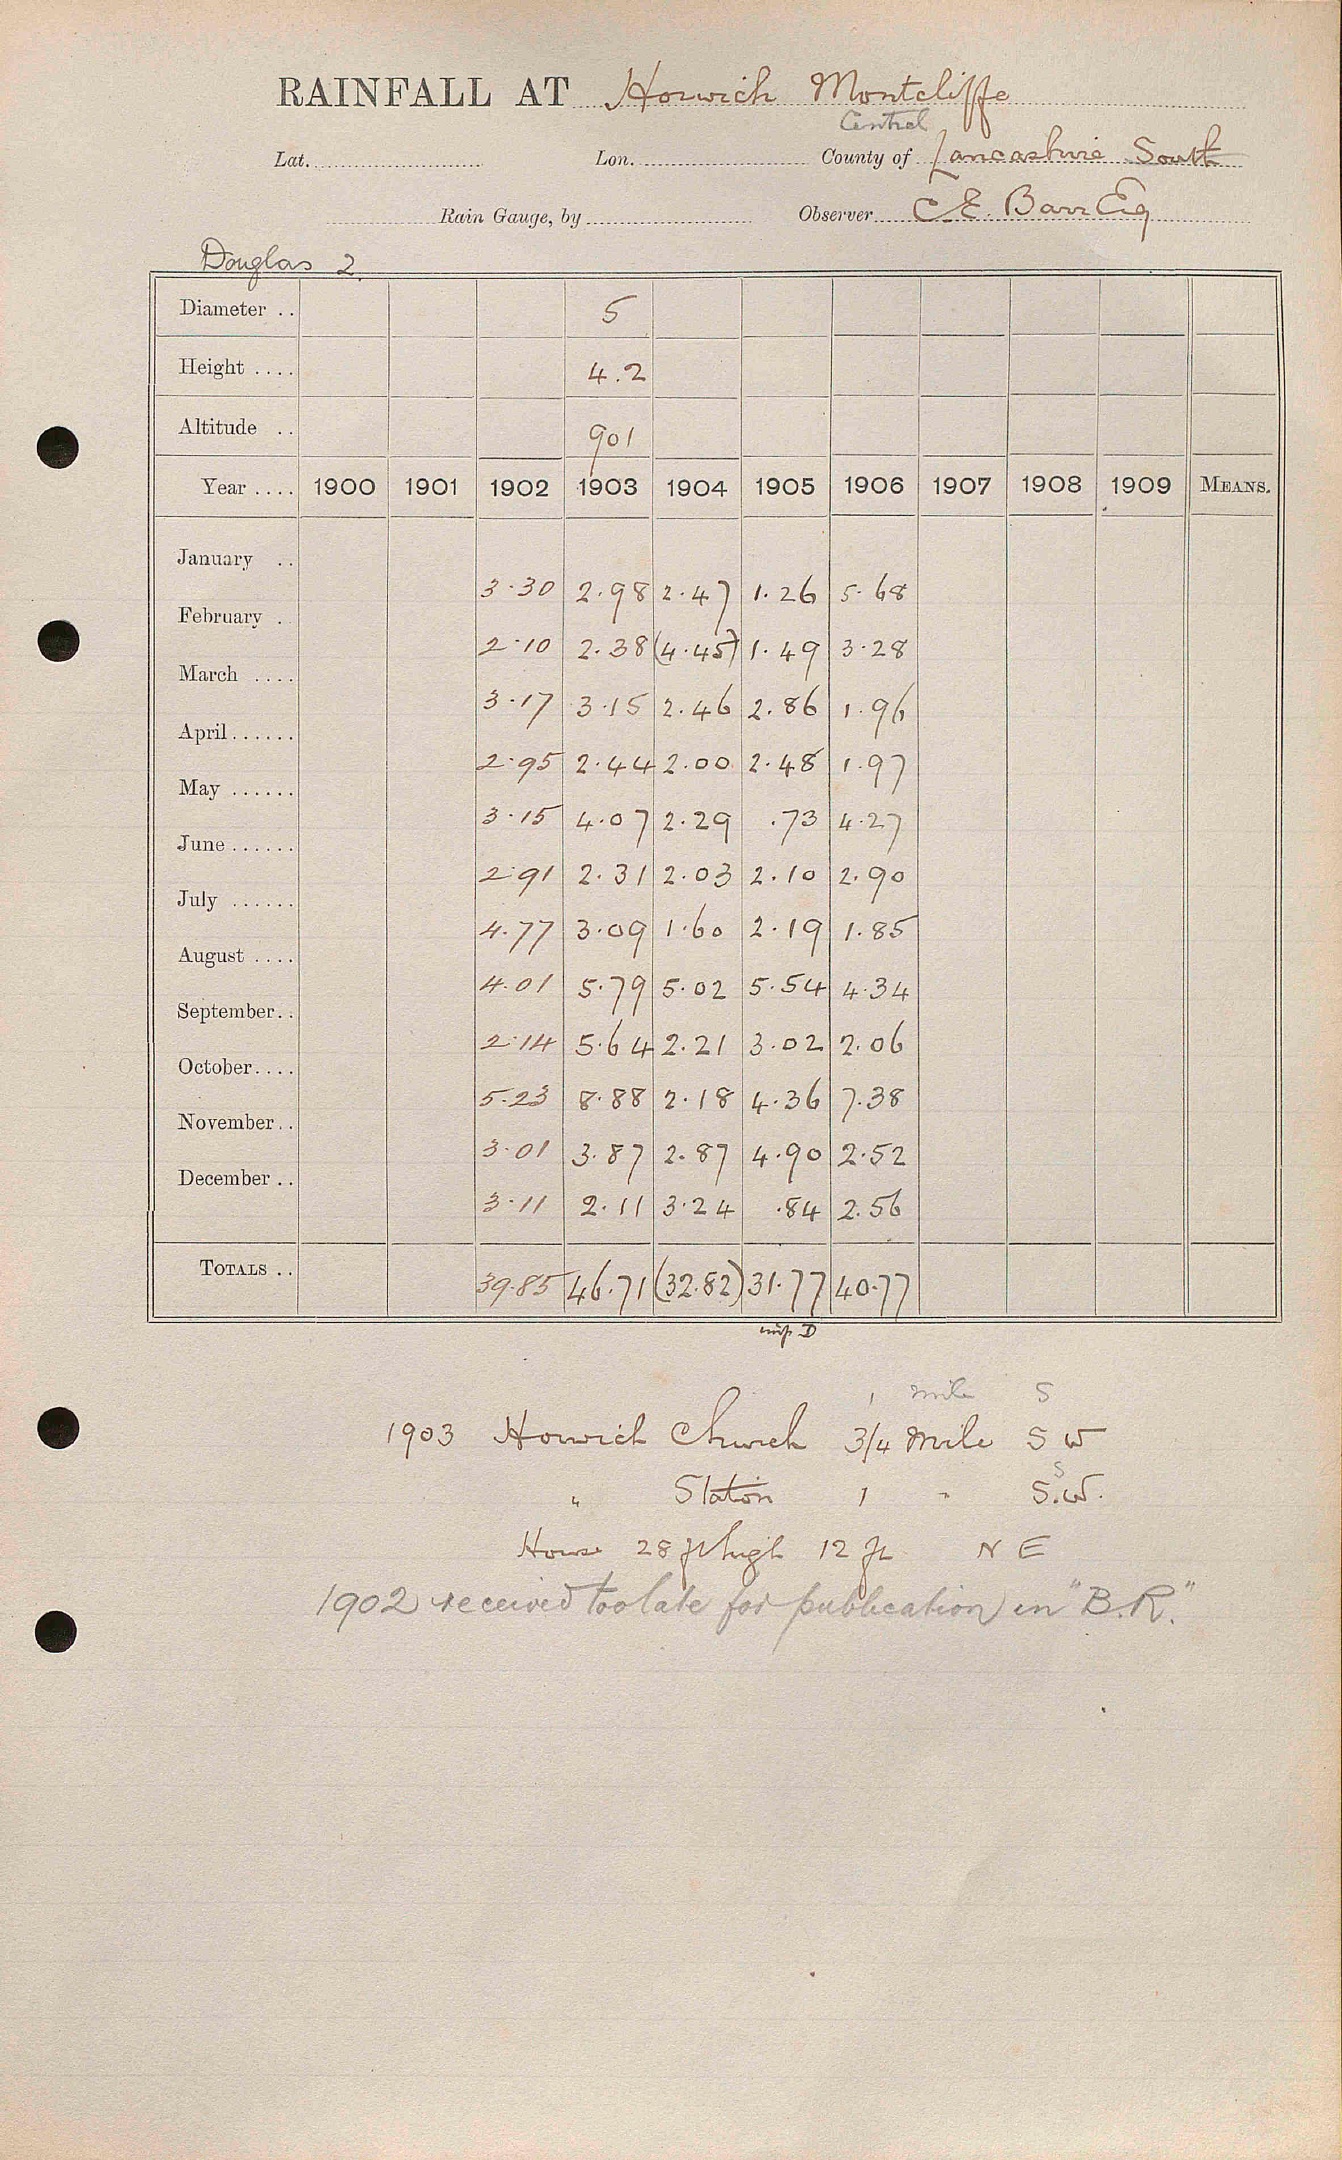 RAINFALL AT Horwich Montcliffe
Central
Lat. Lon. County of Lancashire South
Rain Gauge, by Observer C E. Barr Esq
Douglas 2
Diameter .. 5
Height .... 4.2
Altitude .. 901
Year .... 1900 1901 1902 1903 1904 1905 1906 1907 1908 1909 MEANS.
January .. 3.30 2.98 2.47 1.26 5.68
February . 2.10 2.38 (4.45) 1.49 3.28
March .... 3.17 3.15 2.46 2.86 1.96
April ...... 2.95 2.44 2.00 2.48 1.97
May ...... 3.15 4.07 2.29 .73 4.27
June ...... 2.91 2.31 2.03 2.10 2.90
July ...... 4.77 3.09 1.60 2.19 1.85
August .... 4.01 5.79 5.02 5.54 4.34
September .. 2.14 5.64 2.21 3.02 2.06
October .... 5.23 8.88 2.18 4.36 7.38
November .. 3.01 3.87 2.87 4.90 2.52
December .. 3.11 2.11 3.24 .84 2.56
TOTALS .. 39.85 46.71 (32.82) 31.77 40.77
D
1 mile S
1903 Horwich Church 3/4 Mile S W
S
" Station 1 " S.W.
House 28 ft high 12 ft N E
1902 received too late for publication in "B.R."